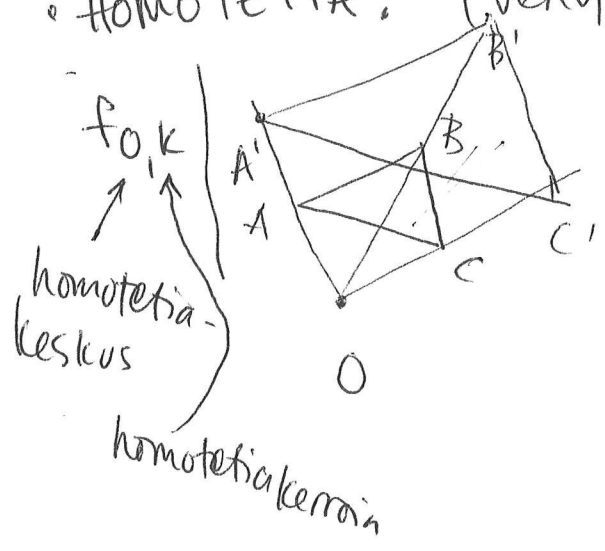 • HOMOTETIA.
f O,k
homotetia-
keskus
homotetiakerroin
A'
B'
B
A
C
C'
O